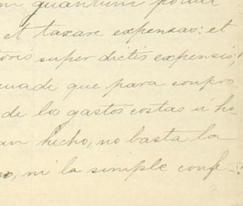 m quantum potue
et taxare expensas; et
toris super dictis expensis
cuade que para compro
de los gastos costas u ho
an hecho, no basta la
o, ni la simple confe